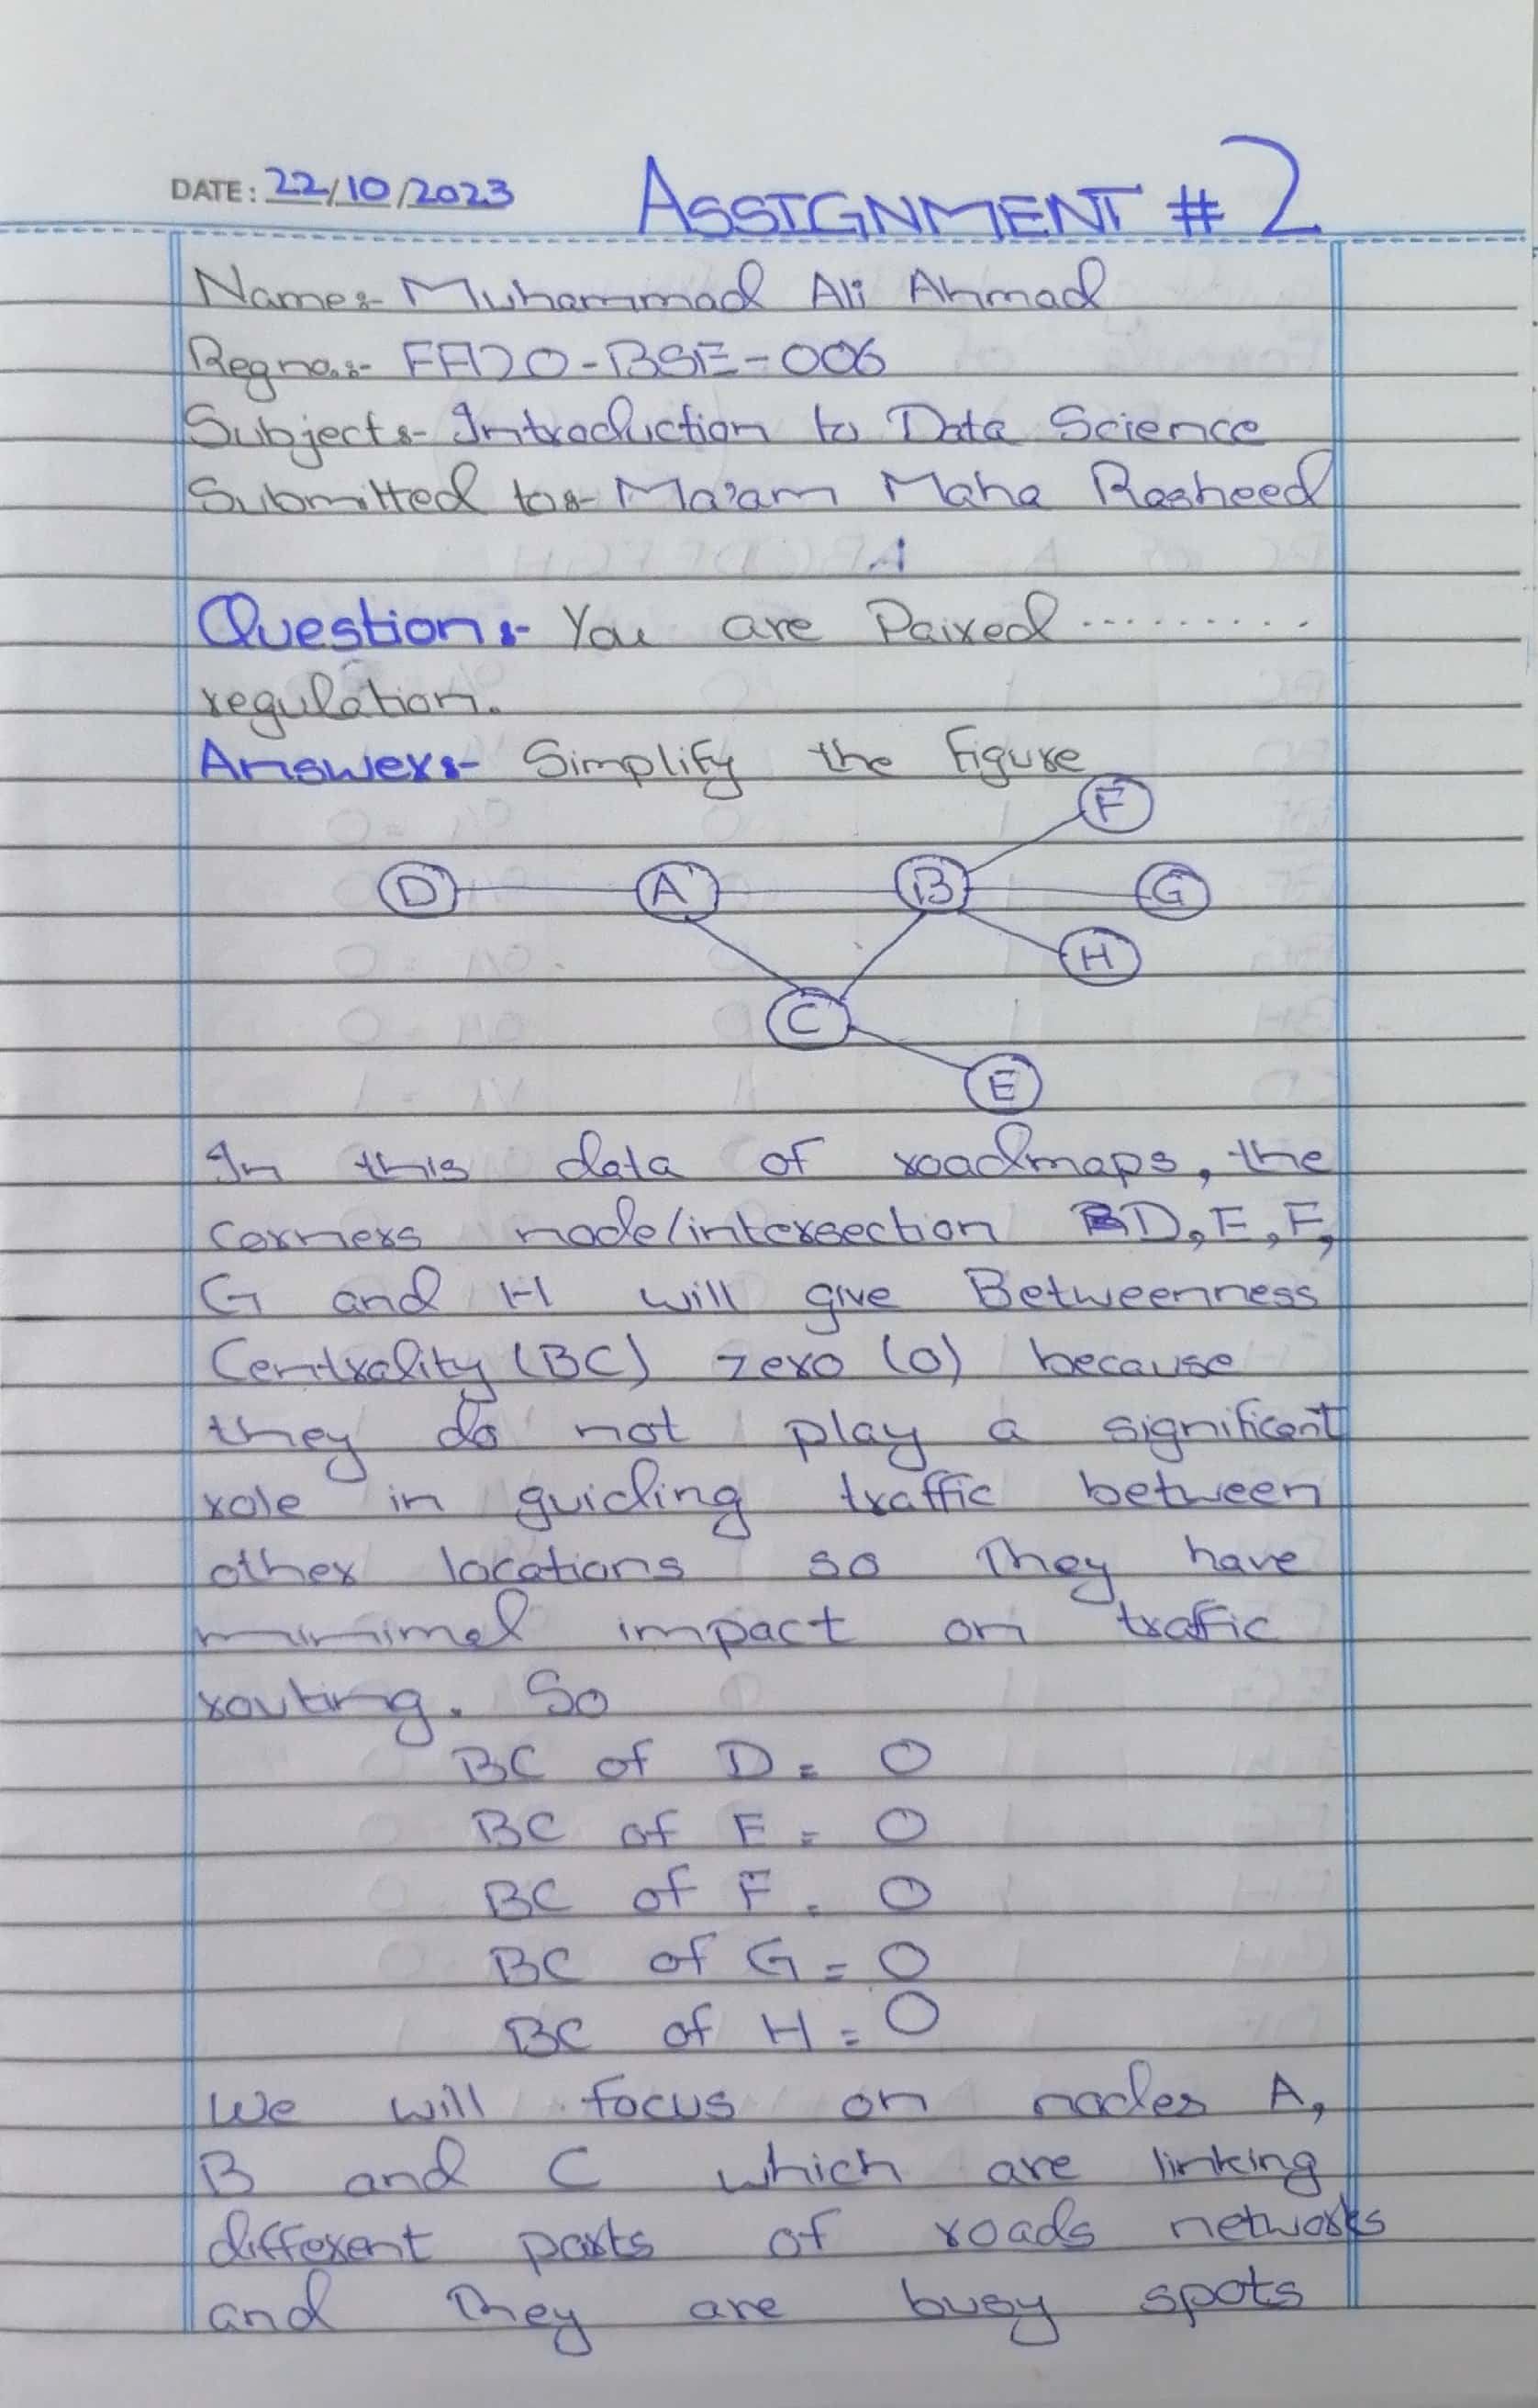 DATE: 22/10/2023 ASSIGNMENT # 2
Name:- Muhammad Ali Ahmad
Regno.:- FA20-BSE-006
Subject:- Introduction to Data Science
Submitted to:- Ma'am Maha Rasheed
A
Question:- You are Paired ..........
regulation.
Answer:- Simplify the figure
F
D A B G
H
C
E
In this data of roadmaps, the
corners node/intersection D, E, F,
G and H will give Betweenness
Centrality (BC) zero (0) because
they do not play a significant
role in guiding traffic between
other locations so they have
minimal impact on traffic
routing. So
BC of D = 0
BC of E = 0
BC of F = 0
BC of G = 0
BC of H = 0
We will focus on nodes A,
B and C which are linking
different parts of roads networks
and they are busy spots